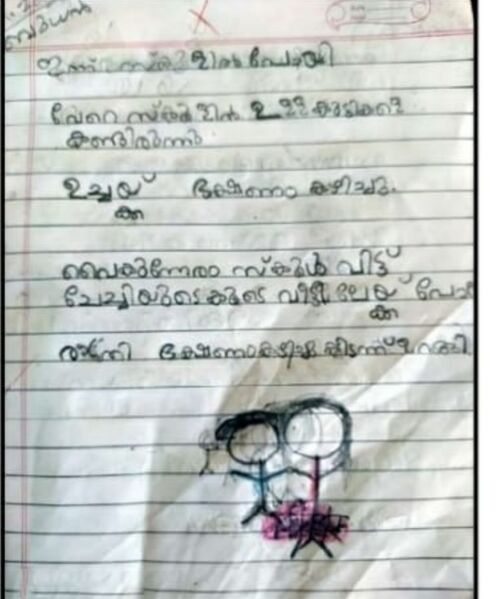 ബുധൻ
ഇന്ന് സ്കൂളിൽ പോയി
വേറെ സ്കൂളിൽ ഉള്ള കുട്ടികളെ
കണ്ടിരുന്നു
ഉച്ചയ്
ക്ക
ഭക്ഷണം കഴിച്ചു.
വൈകുന്നേരം സ്കൂൾ വിട്ട്
ചേച്ചിയുടെ കൂടെ വീട്ടിലേയ്
ക്ക
രാത്രി ഭക്ഷണം കഴിച്ചു കിടന്ന് ഉറങ്ങി